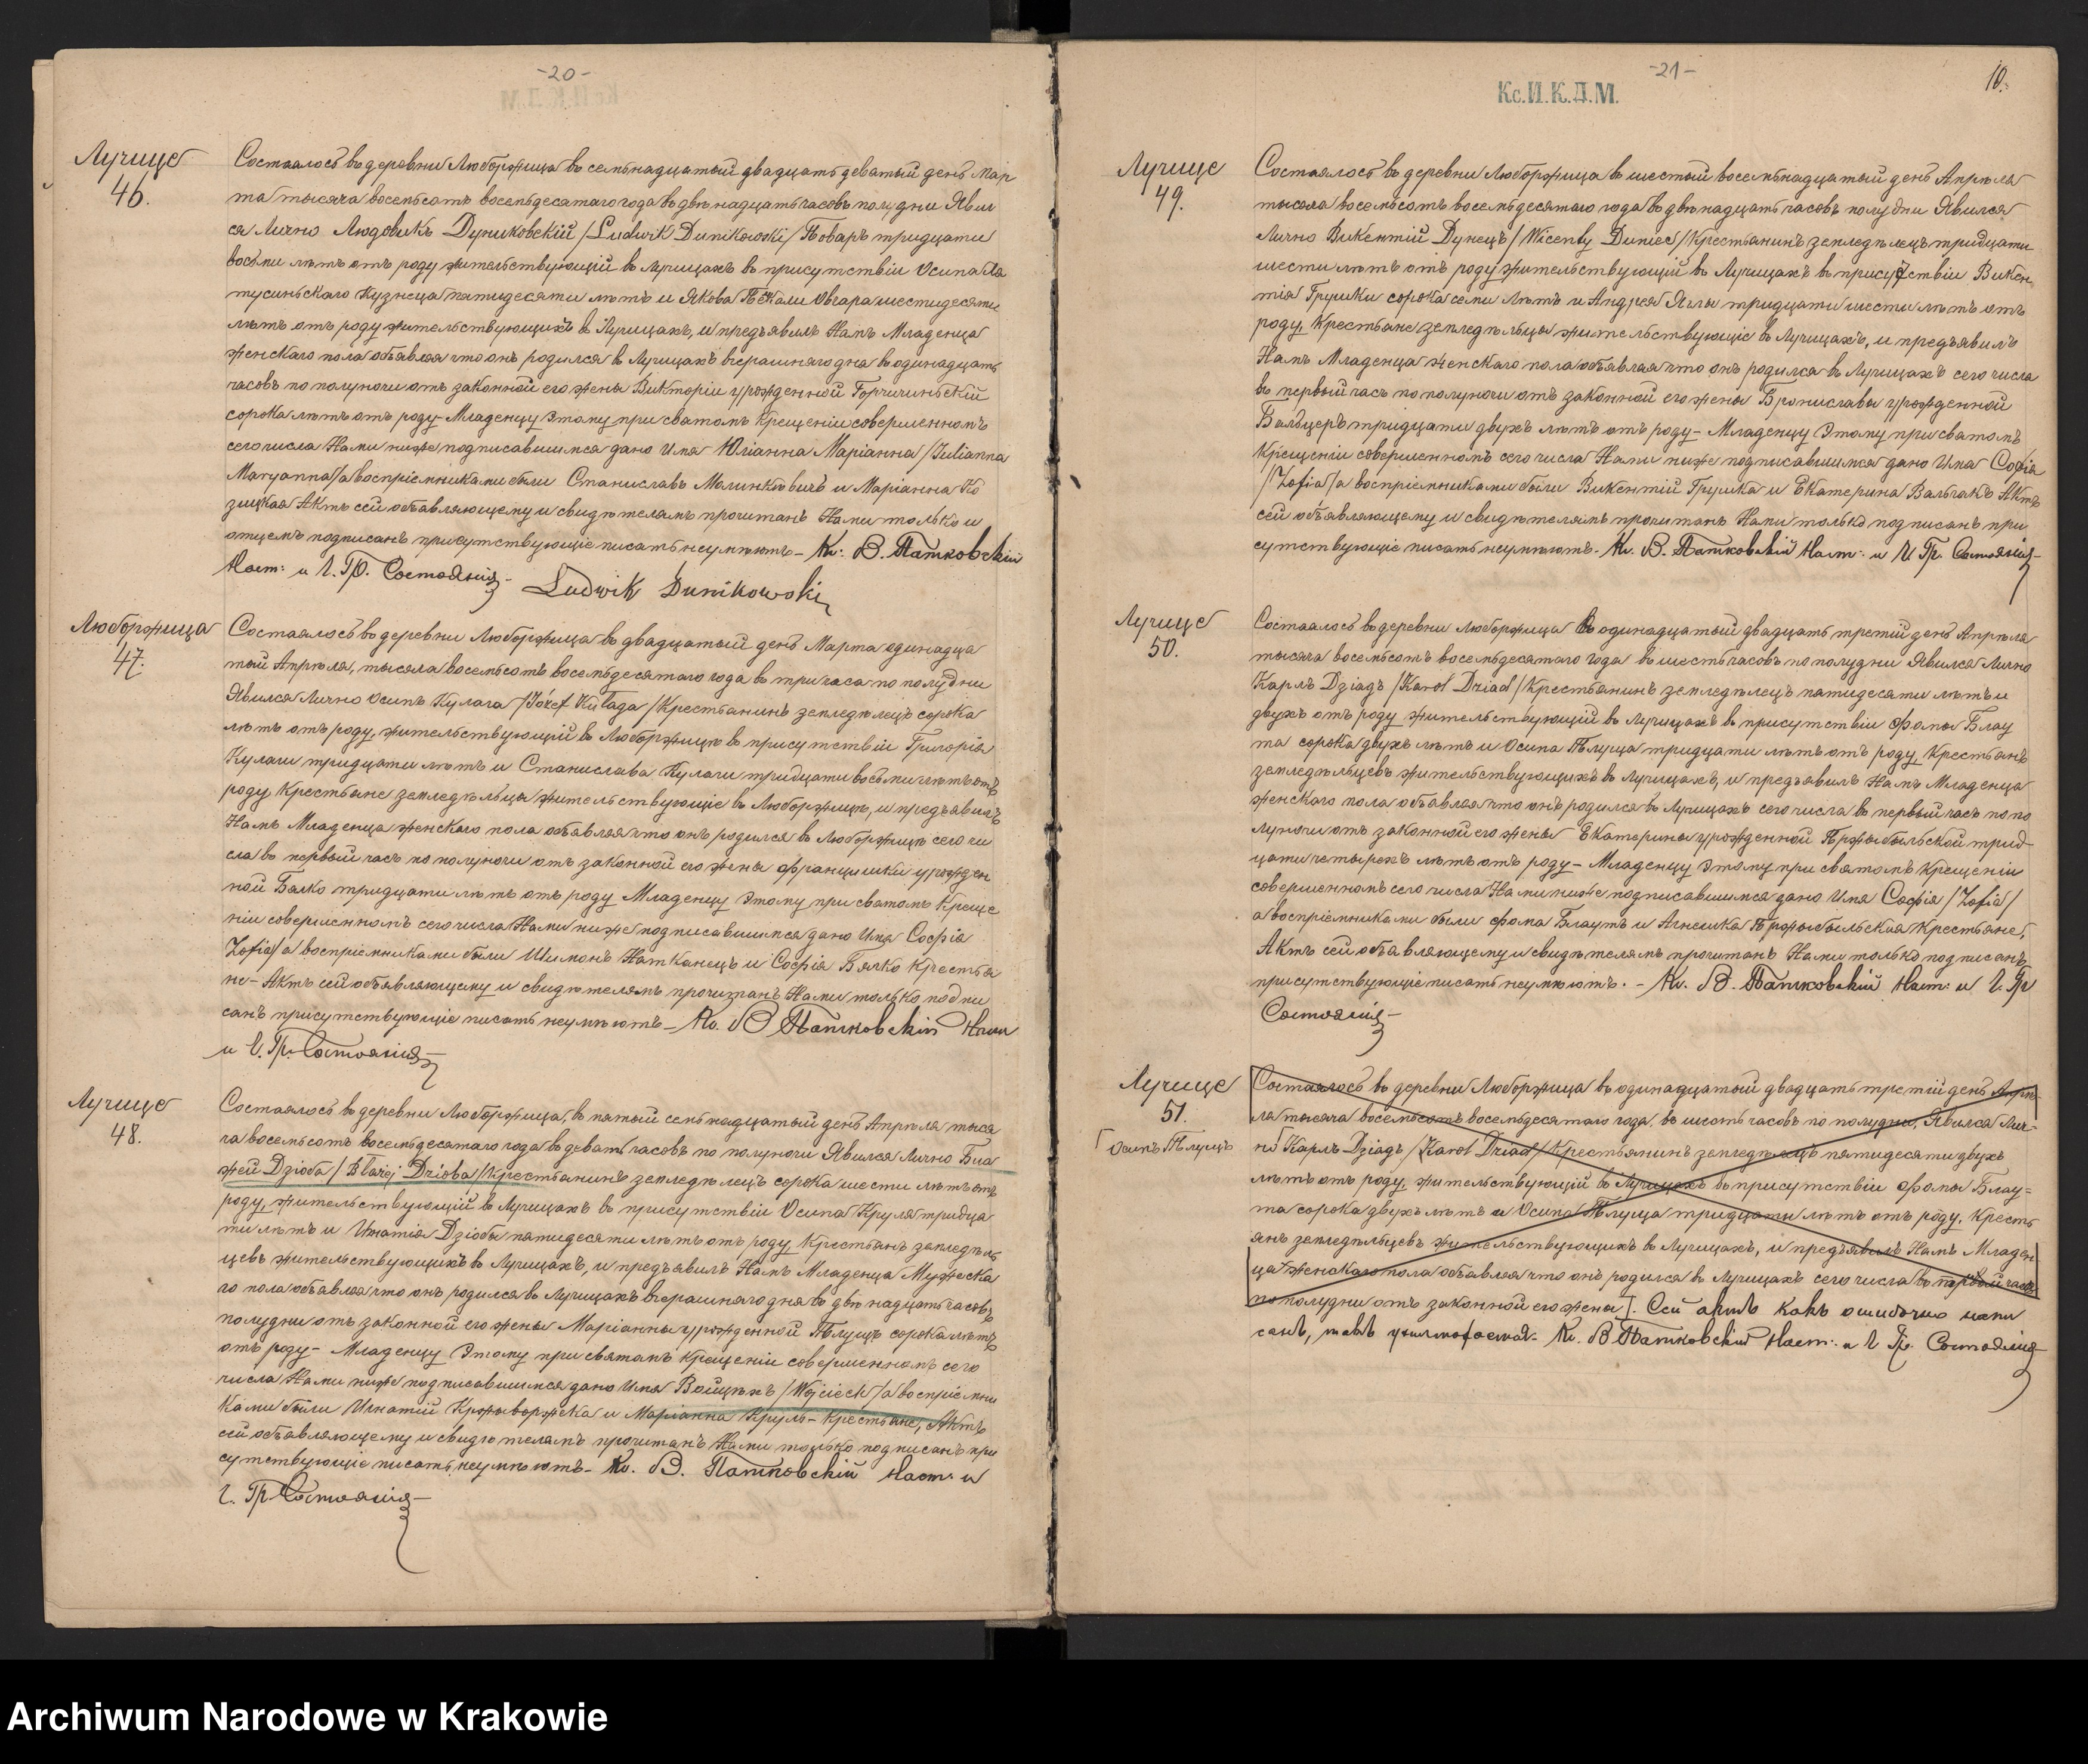 -20-
Лучице
46.
Состоялось въ деревни Люборжица въ семьнадцатый двадцать девятый день Мар
та тысяча восемьсотъ восемьдесятаго года въ двѣнадцать часовъ полудни Явил
ся Лично Людовикъ Дуниковскій /Ludwik Dunikowski/ Поваръ тридцати
восьми лѣтъ отъ роду жительствующій въ Лучицахъ въ присутствіи Осипа Ма
тусиньскаго Кузнеца пятидесяти лѣтъ и Якова Пѣкали Овчара шестидесяти
лѣтъ отъ роду жительствующихъ въ Лучицахъ, и предъявилъ Намъ Младенца
женскаго пола объявляя что онъ родился въ Лучицахъ вчерашняго дня въ одинадцать
часовъ по полуночи отъ законной его жены Викторіи урожденной Горчичиньской
сорока лѣтъ отъ роду - Младенцу Этому при святомъ Крещеніи совершенномъ
сего числа Нами ниже подписавшимся дано Имя Юліанна Маріанна /Julianna
Maryanna/ а воспріемниками были Станиславъ Малинкевичъ и Маріанна Ко
зицкая Актъ сей объявляющему и свидѣтелямъ прочитанъ Нами только и
отцемъ подписанъ присутствующіе писать неумѣютъ - Кс: В. Патковскій
Наст: и Ч. Гр. Состоянія - Ludwik Dunikowski
Люборжица
47.
Состоялось въ деревни Люборжица въ двадцатый день Марта одинадца
тый Апрѣля, тысяча восемьсотъ восемьдесятаго года въ три часа по полудни
Явился Лично Осипъ Кулага /Józef Kułaga/ Крестьянинъ земледѣлецъ сорока
лѣтъ отъ роду, жительствующій въ Люборжицѣ въ присутствіи Григорія
Кулаги тридцати лѣтъ и Станислава Кулаги тридцати восьми лѣтъ отъ
роду Крестьяне земледѣльцы жительствующіе въ Люборжицѣ, и предъявилъ
Намъ Младенца женскаго пола объявляя что онъ родился въ Люборжицѣ сего чи
сла въ первый часъ по полуночи отъ законной его жены Францишки урожден
ной Бялко тридцати лѣтъ отъ роду Младенцу Этому при святомъ Креще
ніи совершенномъ сего числа Нами ниже подписавшимся дано Имя Софія
Zofia/ а воспріемниками были Шимонъ Наткaнецъ и Софія Бялко Крестья
не - Актъ сей объявляющему и свидѣтелямъ прочитанъ Нами только подпи
санъ присутствующіе писать неумѣютъ - Кс. В Патковскій Наст
и Ч. Гр. Состоянія -
Лучице
48.
Состоялось въ деревни Люборжица, въ пятый семьнадцатый день Апрѣля тыся
ча восемьсотъ восемьдесятаго года въ девять часовъ по полуночи Явился Лично Бла
жей Дзіоба /Błażej Dzioba/ Крестьянинъ земледѣлецъ сорока шести лѣтъ отъ
роду, жительствующій въ Лучицахъ въ присутствіи Осипа Круля тридца
ти лѣтъ и Игнатія Дзіобы пятидесяти лѣтъ отъ роду Крестьянъ земледѣль
цевъ жительствующихъ въ Лучицахъ, и предъявилъ Намъ Младенца Мужеска
го пола объявляя что онъ родился въ Лучицахъ вчерашняго дня въ двѣнадцать часовъ
полудни отъ законной его жены Маріанны урожденной Плуцъ сорока лѣтъ
отъ роду - Младенцу Этому при святомъ Крещеніи совершенномъ сего
числа Нами ниже подписавшимся дано Имя Войцѣхъ /Wojciech/ а воспріемни
ками были Игнатій Кржыворжека и Маріанна Круль - Крестьяне, Актъ
сей объявляющему и свидѣтелямъ прочитанъ Нами только подписанъ при
сутствующіе писать неумѣютъ - Кс. В. Патковскій Наст. и
Ч. Гр. Состоянія -
-21-
Кс.И.К.Д.М.
10.
Лучице
49.
Состоялось въ деревни Люборжица въ шестый восемьнадцатый день Апрѣля
тысяча восемьсотъ восемьдесятаго года въ двѣнадцать часовъ полудни Явился
Лично Викентій Дунецъ /Wicenty Duniec/ Крестьянинъ земледѣлецъ тридцати
шести лѣтъ отъ роду жительствующій въ Лучицахъ въ присутствіи Викен
тія Грушки сорока семи лѣтъ и Андрея Яглы тридцати шести лѣтъ отъ
роду, Крестьяне земледѣльцы жительствующіе въ Лучицахъ, и предъявилъ
Намъ Младенца женскаго пола объявляя что онъ родился въ Лучицахъ сего числа
въ первый часъ по полуночи отъ законной его жены Брониславы урожденной
Вальцеръ тридцати двухъ лѣтъ отъ роду - Младенцу Этому при святомъ
Крещеніи совершенномъ сего числа Нами ниже подписавшимся дано Имя Софія
/Zofia/ а воспріемниками были Викентій Грушка и Екатерина Вальчакъ Актъ
сей объявляющему и свидѣтелямъ прочитанъ Нами только подписанъ при
сутствующіе писать неумѣютъ - Кс. В. Патковскій Наст: и Ч Гр. Состоянія -
Лучице
50.
Состоялось въ деревни Люборжица въ одинадцатый двадцать третій день Апрѣля
тысяча восемьсотъ восемьдесятаго года въ шесть часовъ по полудни Явился Лично
Карлъ Дзіадъ /Karol Dziad/ Крестьянинъ земледѣлецъ пятидесяти лѣтъ и
двухъ отъ роду жительствующій въ Лучицахъ въ присутствіи Фомы Блау
та сорока двухъ лѣтъ и Осипа Плуца тридцати лѣтъ отъ роду, Крестьянъ
земледѣльцевъ жительствующихъ въ Лучицахъ, и предъявилъ Намъ Младенца
женскаго пола объявляя что онъ родился въ Лучицахъ сего числа въ первый часъ по по
луночи отъ законной его жены Екатерины урожденной Пржыбыльской трид-
цати четырехъ лѣтъ отъ роду - Младенцу Этому при святомъ Крещеніи
совершенномъ сего числа Нами ниже подписавшимся дано Имя Софія /Zofia/
а воспріемниками были Фома Блаутъ и Агнешка Пржыбыльская Крестьяне,
Актъ сей объявляющему и свидѣтелямъ прочитанъ Нами только подписанъ
присутствующіе писать неумѣютъ. - Кс. В. Патковскій Наст: и Ч. Гр
Состоянія -
Лучице
51.
Осипъ Плуцъ
Состоялось въ деревни Люборжица въ одинадцатый двадцать третій день Апрѣ-
ля тысяча восемьсотъ восемьдесятаго года, въ шесть часовъ по полудни, Явился Лич-
но Карлъ Дзіадъ /Karol Dziad/ Крестьянинъ земледѣлецъ пятидесяти двухъ
лѣтъ отъ роду, жительствующій въ Лучицахъ въ присутствіи Фомы Блау=
та сорока двухъ лѣтъ и Осипа Плуца тридцати лѣтъ отъ роду, Кресть
янъ земледѣльцевъ жительствующихъ въ Лучицахъ, и предъявилъ Намъ Младен
ца женскаго пола объявляя что онъ родился въ Лучицахъ сего числа въ первый часъ
по полудни отъ законной его жены]. Сей актъ какъ ошибочно напи
санъ, Кс. В Патковскій Наст: и Ч Гр. Состоянія -
Archiwum Narodowe w Krakowie